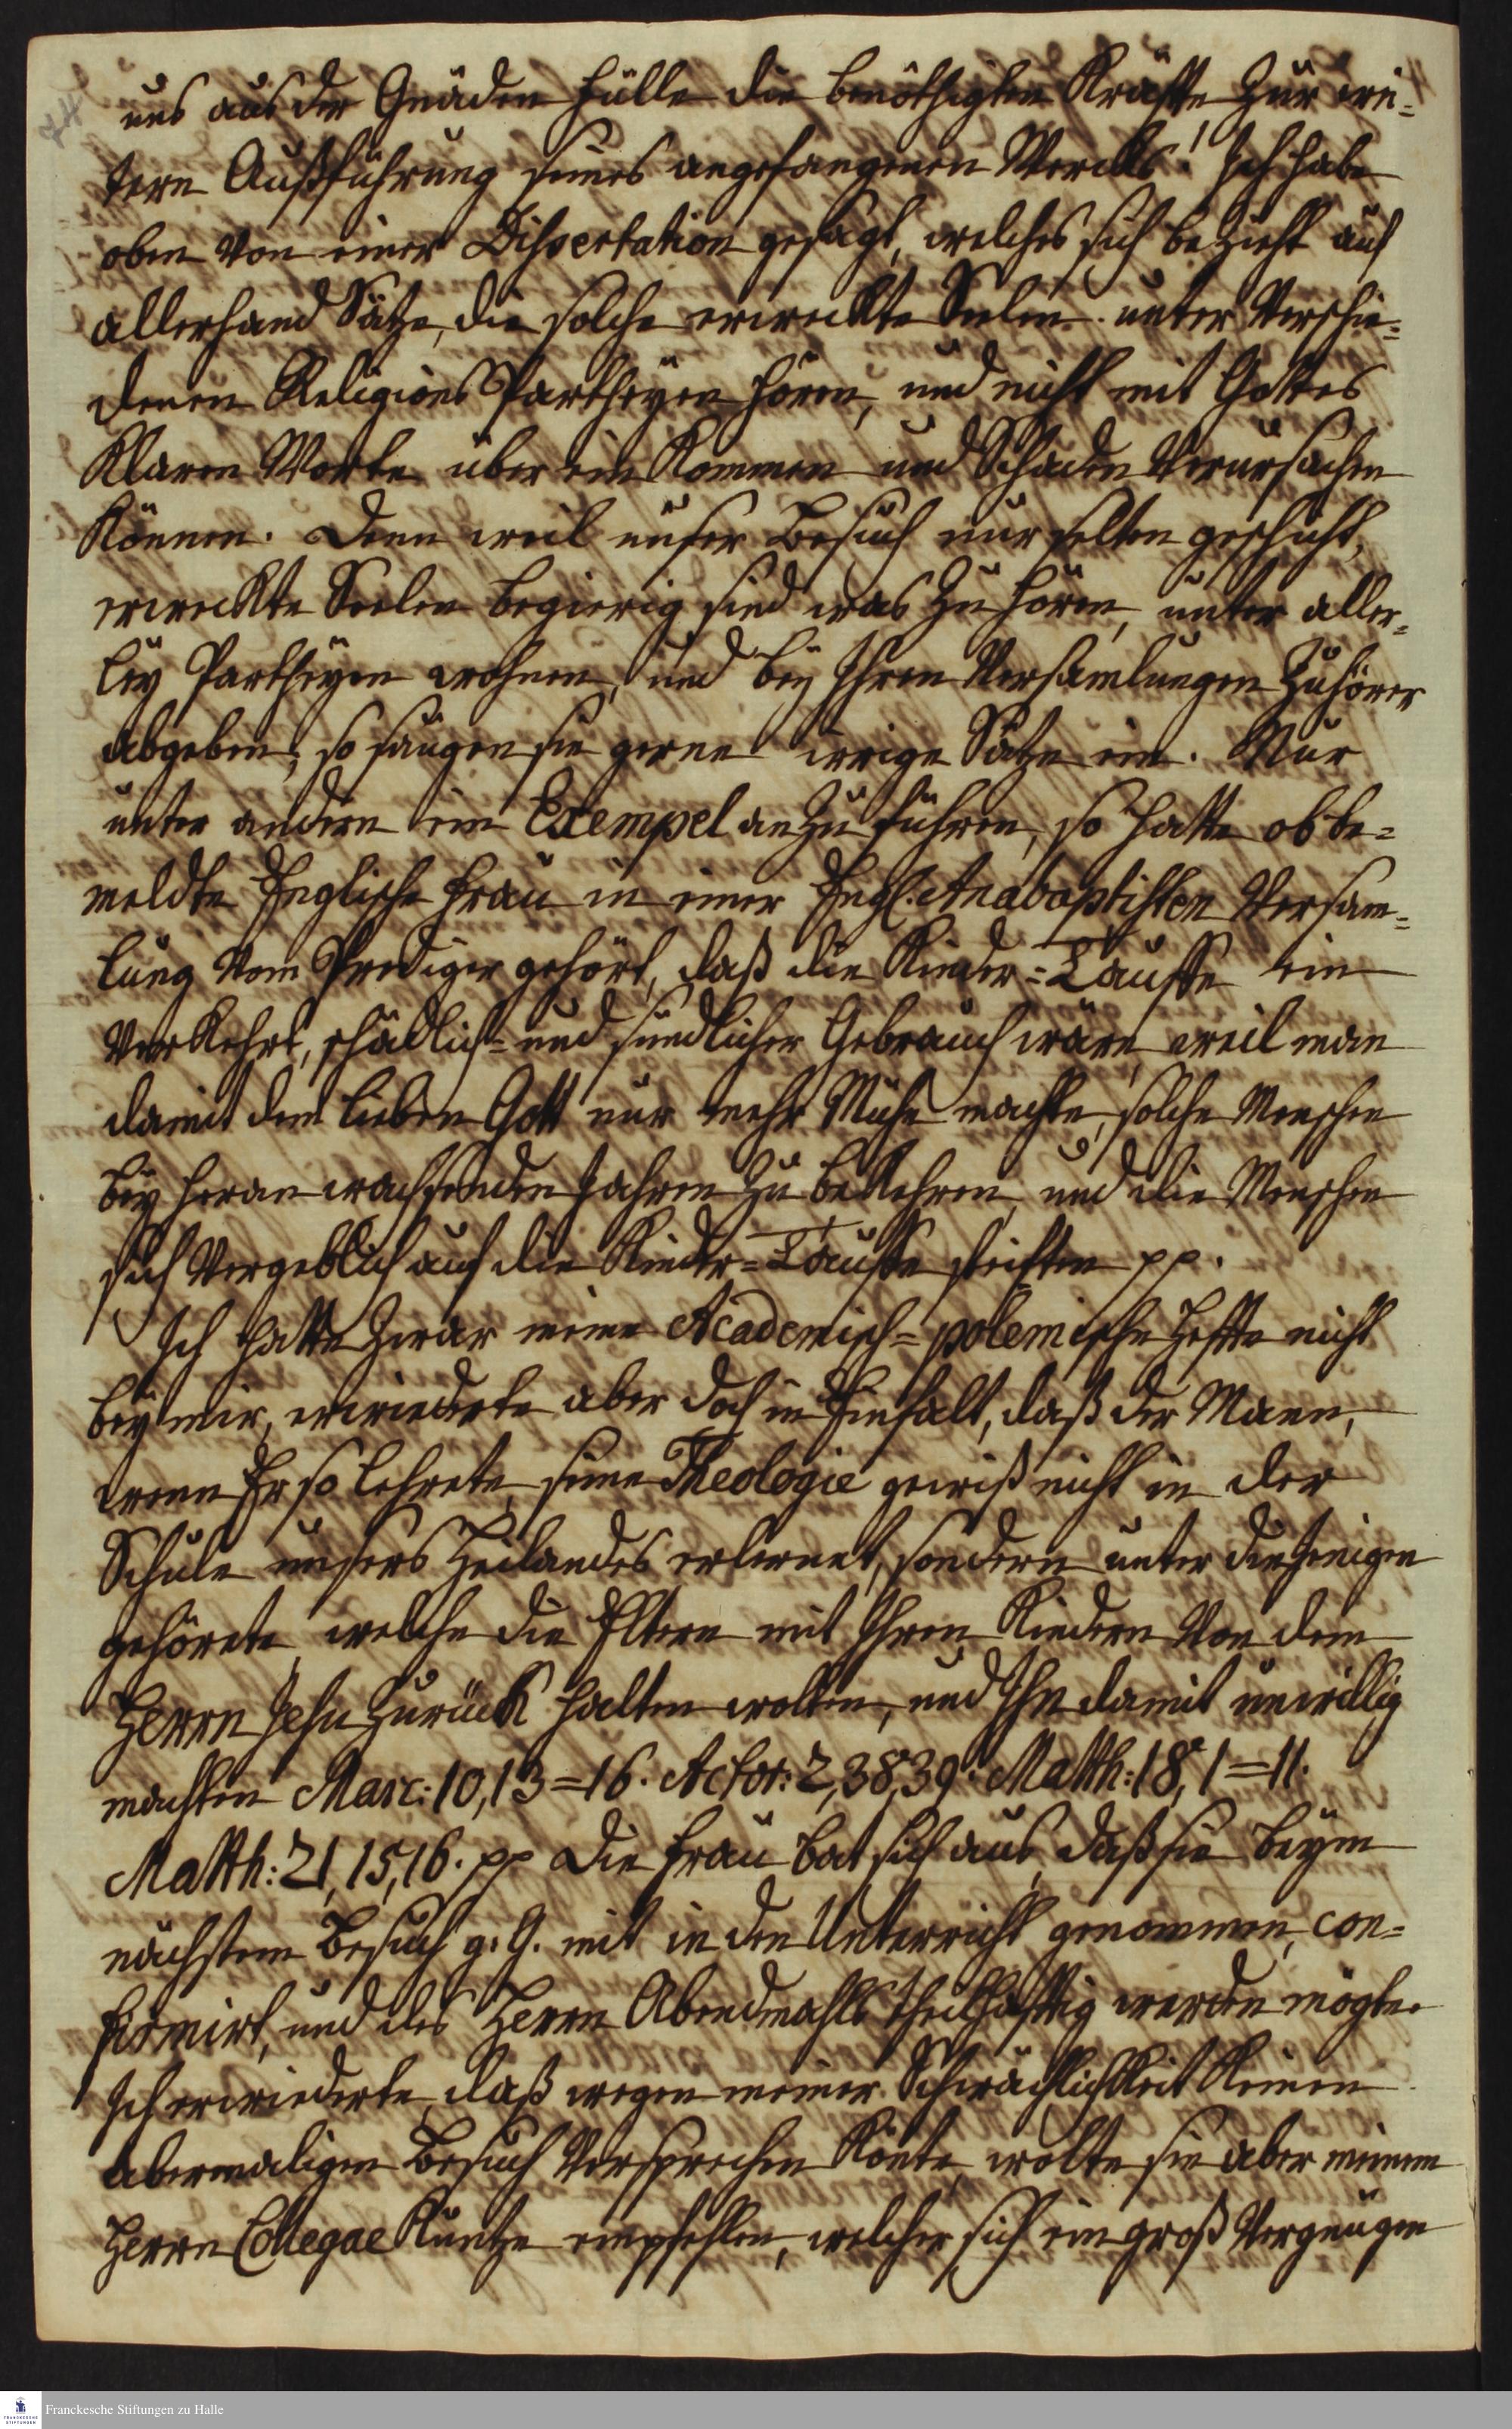 74
uns aus der Gnaden Fülle die benöthigten Kräfte zur wei-
tern Außführung seines angefangenen Wercks! Ich habe
oben von einer Dissertation gesagt, welches sich beziehet auf
allerhand Sätze, die solche erweckte Seelen unter verschie-
denen Religions Partheyen hören, und nicht mit Gottes
klaren Worte über ein kommen und Schaden verursachen
können. Denn weil unser Besuch nur selten geschicht,
erweckte Seelen begierig sind was zu hören, unter aller-
ley Partheyen wohnen, und bey Ihren Versamlungen Zuhörer
abgeben, so saugen sie gerne irrige Sätze ein. Nur
unter andern ein Exempel anzuführen, so hatte obbe-
meldte Englische Frau in einer Engl. Anabaptisten Versam-
lung vom Prediger gehört, daß die Kinder-Tauffe ein
verkehrt, schädlich- und sündlicher Gebrauch wäre, weil man
damit dem lieben Gott nur mehr Mühe machte, solche Menschen
bey heran wachsenden Jahren zu bekehren, und die Menschen
sich vergeblich auf die Kinder-Tauffe steiften pp.
Ich hatte zwar meine Academisch-polemische Heffte nicht
bey mir, erwiederte aber doch in Einfalt, daß der Mann,
wenn Er so lehrete, seine Theologie gewiß nicht in der
Schule unsers Heilandes erlernet, sondern unter diejenigen
gehörete, welche die Eltern mit Ihren Kindern von dem
Herrn Jesu zurück halten wolten, und Ihn damit unwillig
machten Marc: 10,13=16. Actor: 2,38,39. Matth: 18, 1=11.
Matth: 21, 15,16. pp Die Frau bat sich aus, daß sie beym
nächstem Besuch g. G. mit in den Unterricht genommen, con-
firmirt, und des Herrn Abendmahls theilhafftig werden mögte.
Ich erwiederte, daß wegen meiner Schwächlichkeit keinen
abermaligen Besuch versprechen könte, wolte sie aber meinem
Herrn Collegae Kuntze empfehlen, welcher sich ein groß Vergnügen
Franckesche Stiftungen zu Halle